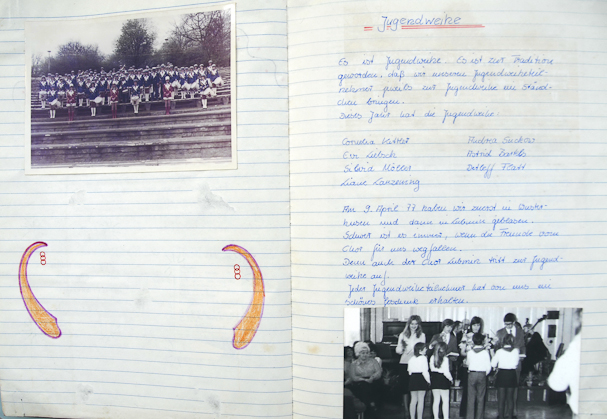 Jugendweihe
Es ist Jugendweihe. Es ist zur Tradition
geworden, daß wir unseren Jugendweiheteil-
nehmer jeweils zur Jugendweihe ein Ständ-
chen bringen.
Dieses Jahr hat die Jugendweihe:
Cornelia Andrea
Astrid
Silvia Detleff
Liane
Am 9. April 77 haben wir zuerst in Wuster-
husen und dann in Lubmin geblasen.
Schwer ist es immer, wenn die Freunde vom
Chor für uns wegfallen.
Denn auch der Chor Lubmin tritt zur Jugend-
weihe auf.
Jeder Jugendweiheteilnehmer hat von uns ein
schönes Geschenk erhalten.